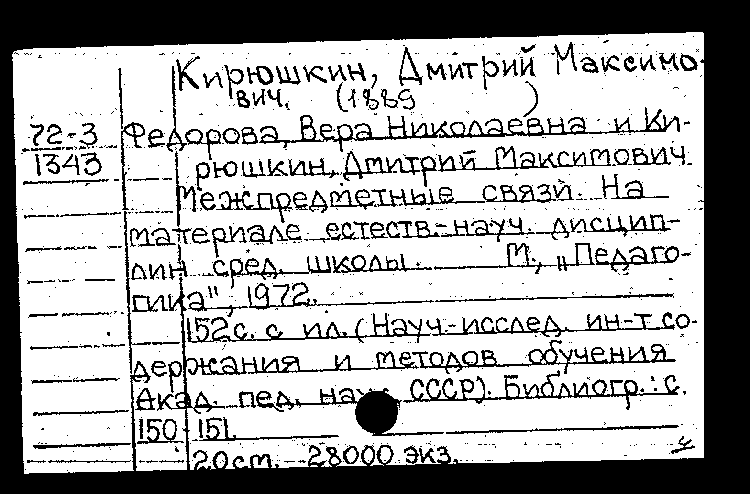 Кирюшкин, Дмитрий Максимо-
вич. (1889 )
72-3 Федорова, Вера Николаевна и Ки-
1343 рюшкин, Дмитрий Максимович.
Межпредметные связи. На
материале естеств.-науч. дисцип-
лин сред. школы. М., „Педаго-
гика", 1972.
152 с. с ил. (Науч.-исслед. ин-т со-
держания и методов обучения
Акад. пед. наук СССР). Библиогр.: с.
150-151.
20 см. 28000 экз.